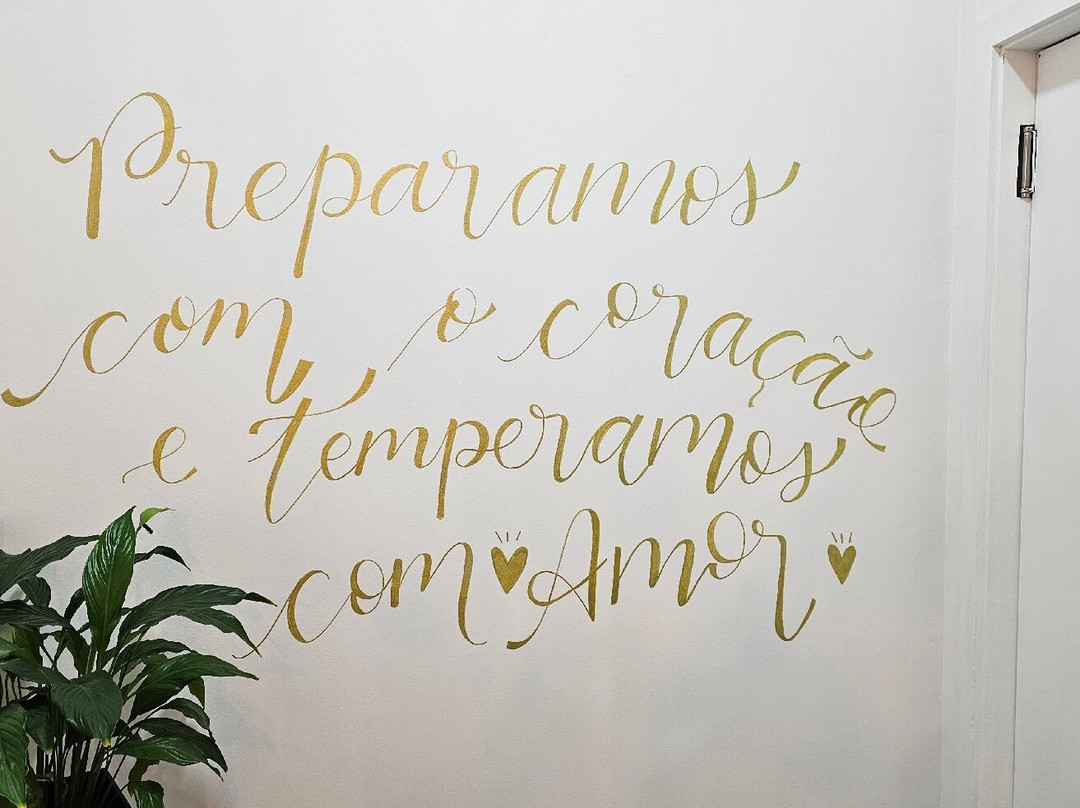 Preparamos
com o coração
e temperamos
com Amor